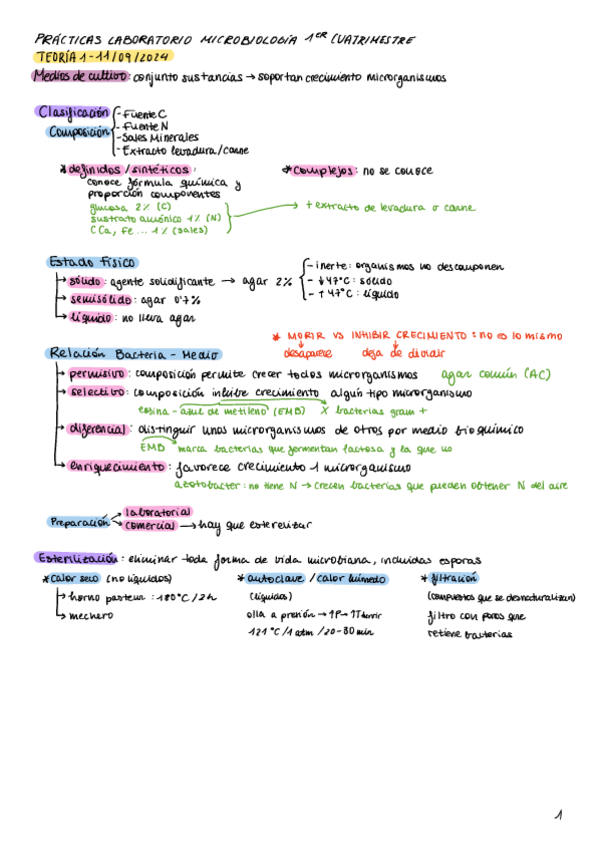 PRÁCTICAS LABORATORIO MICROBIOLOGÍA 1ER CUATRIMESTRE
TEORÍA 1 - 11/09/2024
Medios de cultivo: conjunto sustancias → soportan crecimiento microrganismos
Clasificación
Composición
- Fuente C
- Fuente N
- Sales Minerales
- Extracto levadura/carne
* definidos/sintéticos:
conoce fórmula química y
proporción componentes
glucosa 2% (C)
sustrato amónico 1% (N)
CCa, Fe ... 1% (sales)
* Complejos: no se conoce
→ + extracto de levadura o carne
Estado Físico
→ sólido: agente solidificante → agar 2%
- inerte: organismos no descomponen
- ↓47°C: sólido
- ↑47°C: líquido
→ semisólido: agar 0'7%
→ líquido: no lleva agar
* MORIR VS INHIBIR CRECIMIENTO: no es lo mismo
desaparece deja de dividir
Relación Bacteria - Medio
→ permisivo: composición permite crecer todos microrganismos agar común (AC)
→ selectivo: composición inhibe crecimiento algún tipo microrganismo
eosina - azul de metileno (EMB) X bacterias gram +
→ diferencial: distinguir unos microrganismos de otros por medio bioquímico
EMB marca bacterias que fermentan lactosa y la que no
→ enriquecimiento: favorece crecimiento 1 microrganismo
azotobacter: no tiene N → crecen bacterias que pueden obtener N del aire
Preparación
→ laboratorial
→ comercial → hay que esterelizar
Esterilización: eliminar toda forma de vida microbiana, incluidas esporas
* calor seco (no líquidos)
→ horno pasteur: 180°C/2h
→ mechero
* autoclave / calor húmedo
(líquidos)
olla a presión → ↑P → ↑T hervir
121°C/1 atm/20-30 min
* filtración
(compuestos que se desnaturalizan)
filtro con poros que
retiene bacterias
1